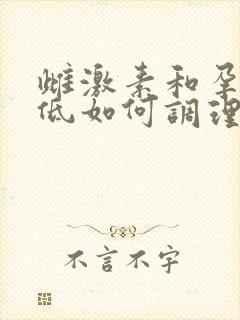 雌激素和孕
低如何調理
不言不字